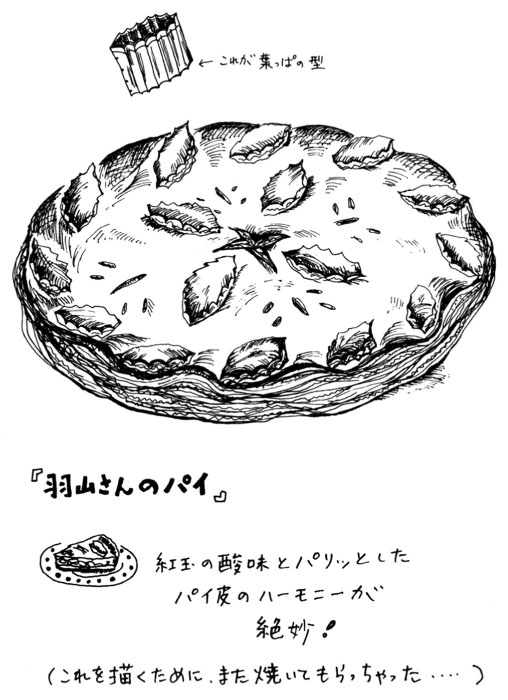 ←これが葉っぱの型
『羽山さんのパイ』
紅玉の酸味とパリッとした
パイ皮のハーモニーが
絶妙!
(これを描くために、また焼いてもらっちゃった‥‥)